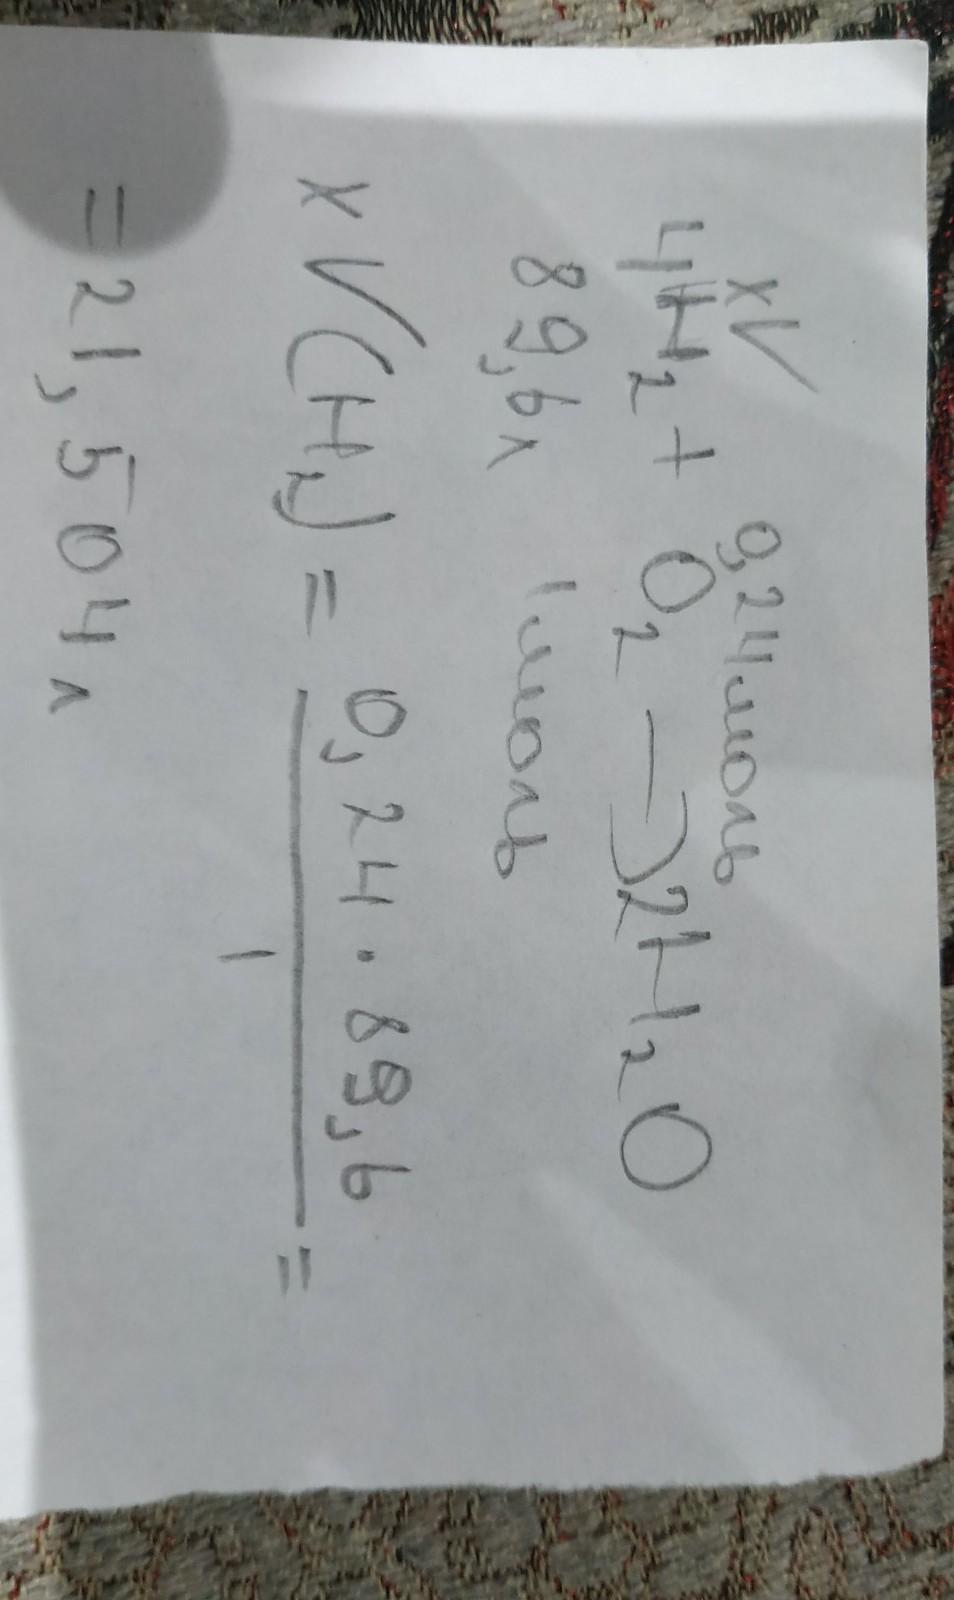 xV 0,24моль
4H₂ + O₂ → 2H₂O
89,6л 1моль
xV(H₂) = 0,24 · 89,6 / 1 =
= 21,504л